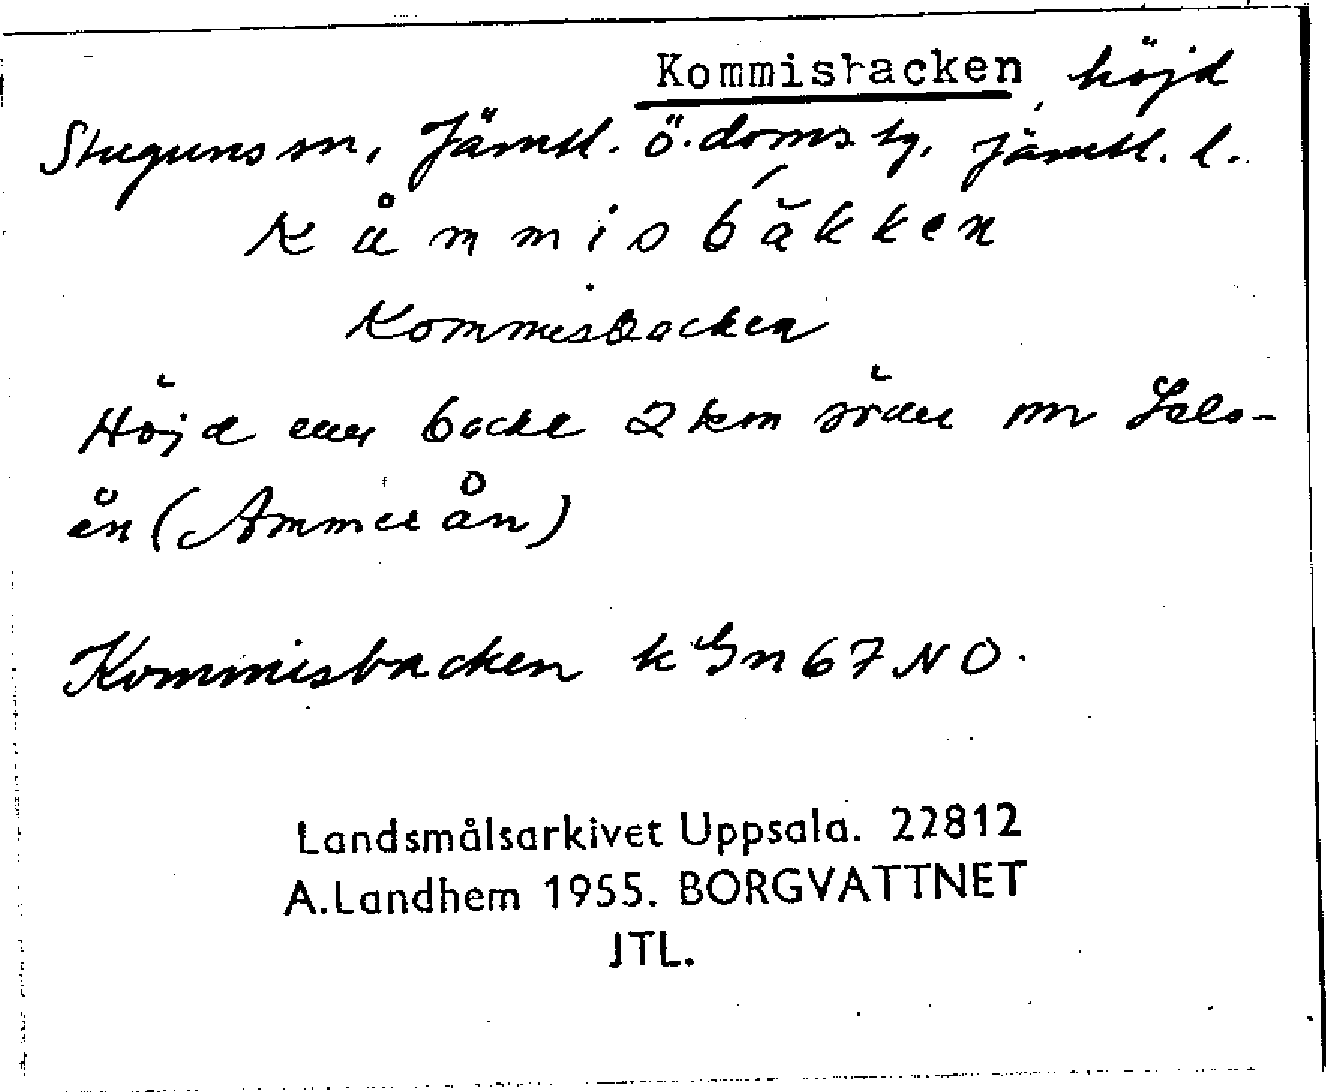 Kommisbacken, höjd
Stuguns sn, Jämtl. ö. doms tg, Jämtl. l.
Kåmmisbäkken
Kommisbacken
Höjd eller backe 2 km söder om
ån (Ammerån)
Kommisbacken k Gn 67 NO.
Landsmålsarkivet Uppsala. 22812
A. Landhem 1955. BORGVATTNET
JTL.